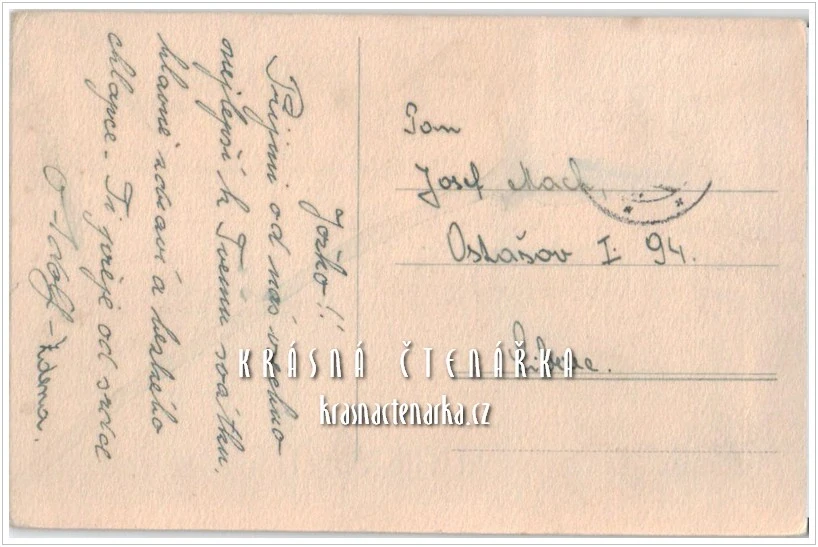 Jožko!!
Přijmi od nás všechno
nejlepší k Tvému svátku,
hlavně zdraví a hezkého
chlapce. Ti přeje od srdce
- Zdena.
Pan
Josef Mach,
Ostašov I. 94.
Liberec.
KRÁSNÁ ČTENÁŘKA
krasnactenarka.cz